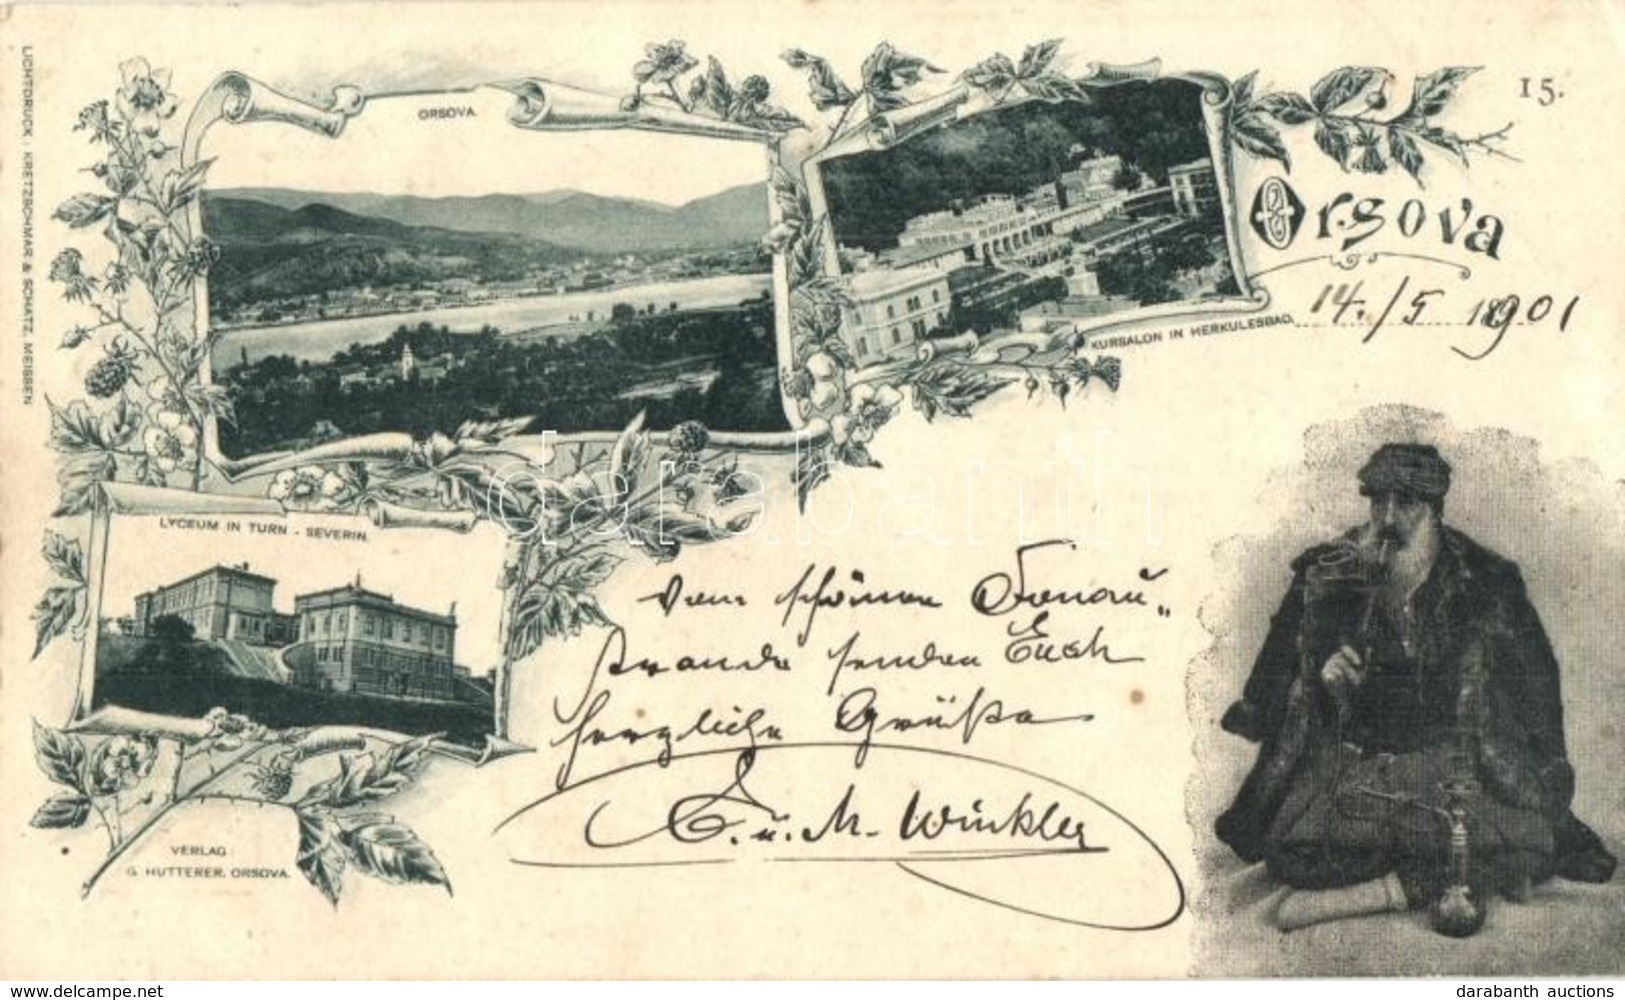 LICHTDRUCK: KRETZSCHMAR & SCHATZ, MEISSEN
ORSOVA.
15.
Orsova
14./5 1901
KURSALON IN HERKULESBAD.
LYCEUM IN TURN - SEVERIN.
darabanth
Vom schönen Donau„
strande senden Euch
herzliche Grüße
E. u. M. Winkler
VERLAG:
G. HUTTERER, ORSOVA.
www.delcampe.net
darabanth auctions